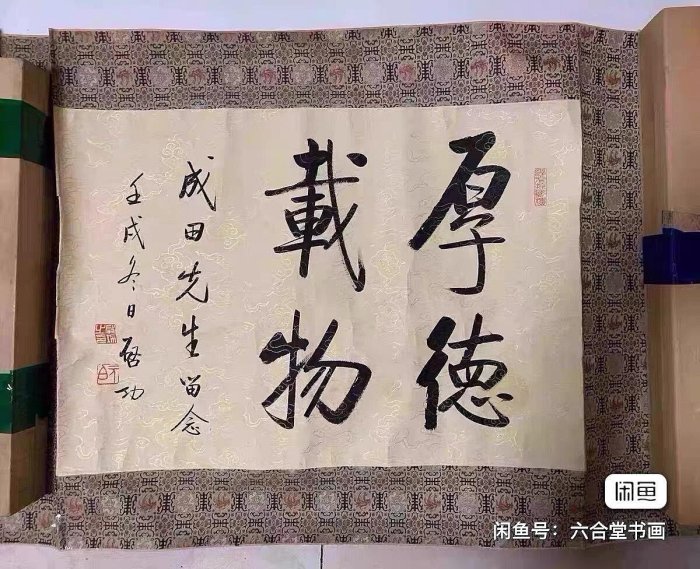 厚德
載物
成田先生留念
壬戌冬日啓功
闲鱼
闲鱼号：六合堂书画